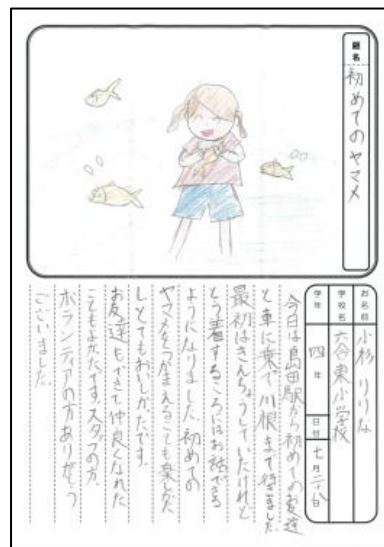 題名
初めてのヤマメ
お名前
小杉 りりな
学校名
六合東小学校
学年
四年
日付
七月二八日
今日は島田駅から初めての友達
と車に乗て川根まて行きました
最初はきんちょうしていたけれど
とう着するころにはお話できる
ようになりました。初めての
ヤマメをつかまえることも楽しかた
しとてもおいしかたです。
お友達もできて仲良くなれた
こともよかたです。スタッフの方、
ボランティアの方ありがとう
ございました。